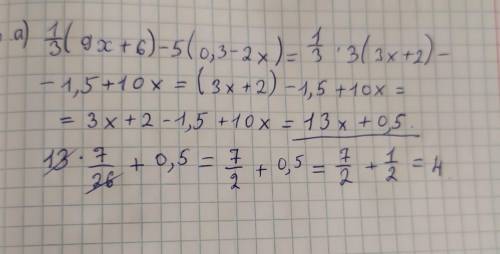 а) 1/3(9x+6)-5(0,3-2x)= 1/3·3(3x+2)-
-1,5+10x=(3x+2)-1,5+10x=
=3x+2-1,5+10x=13x+0,5.
13·7/26+0,5=7/2+0,5=7/2+1/2=4